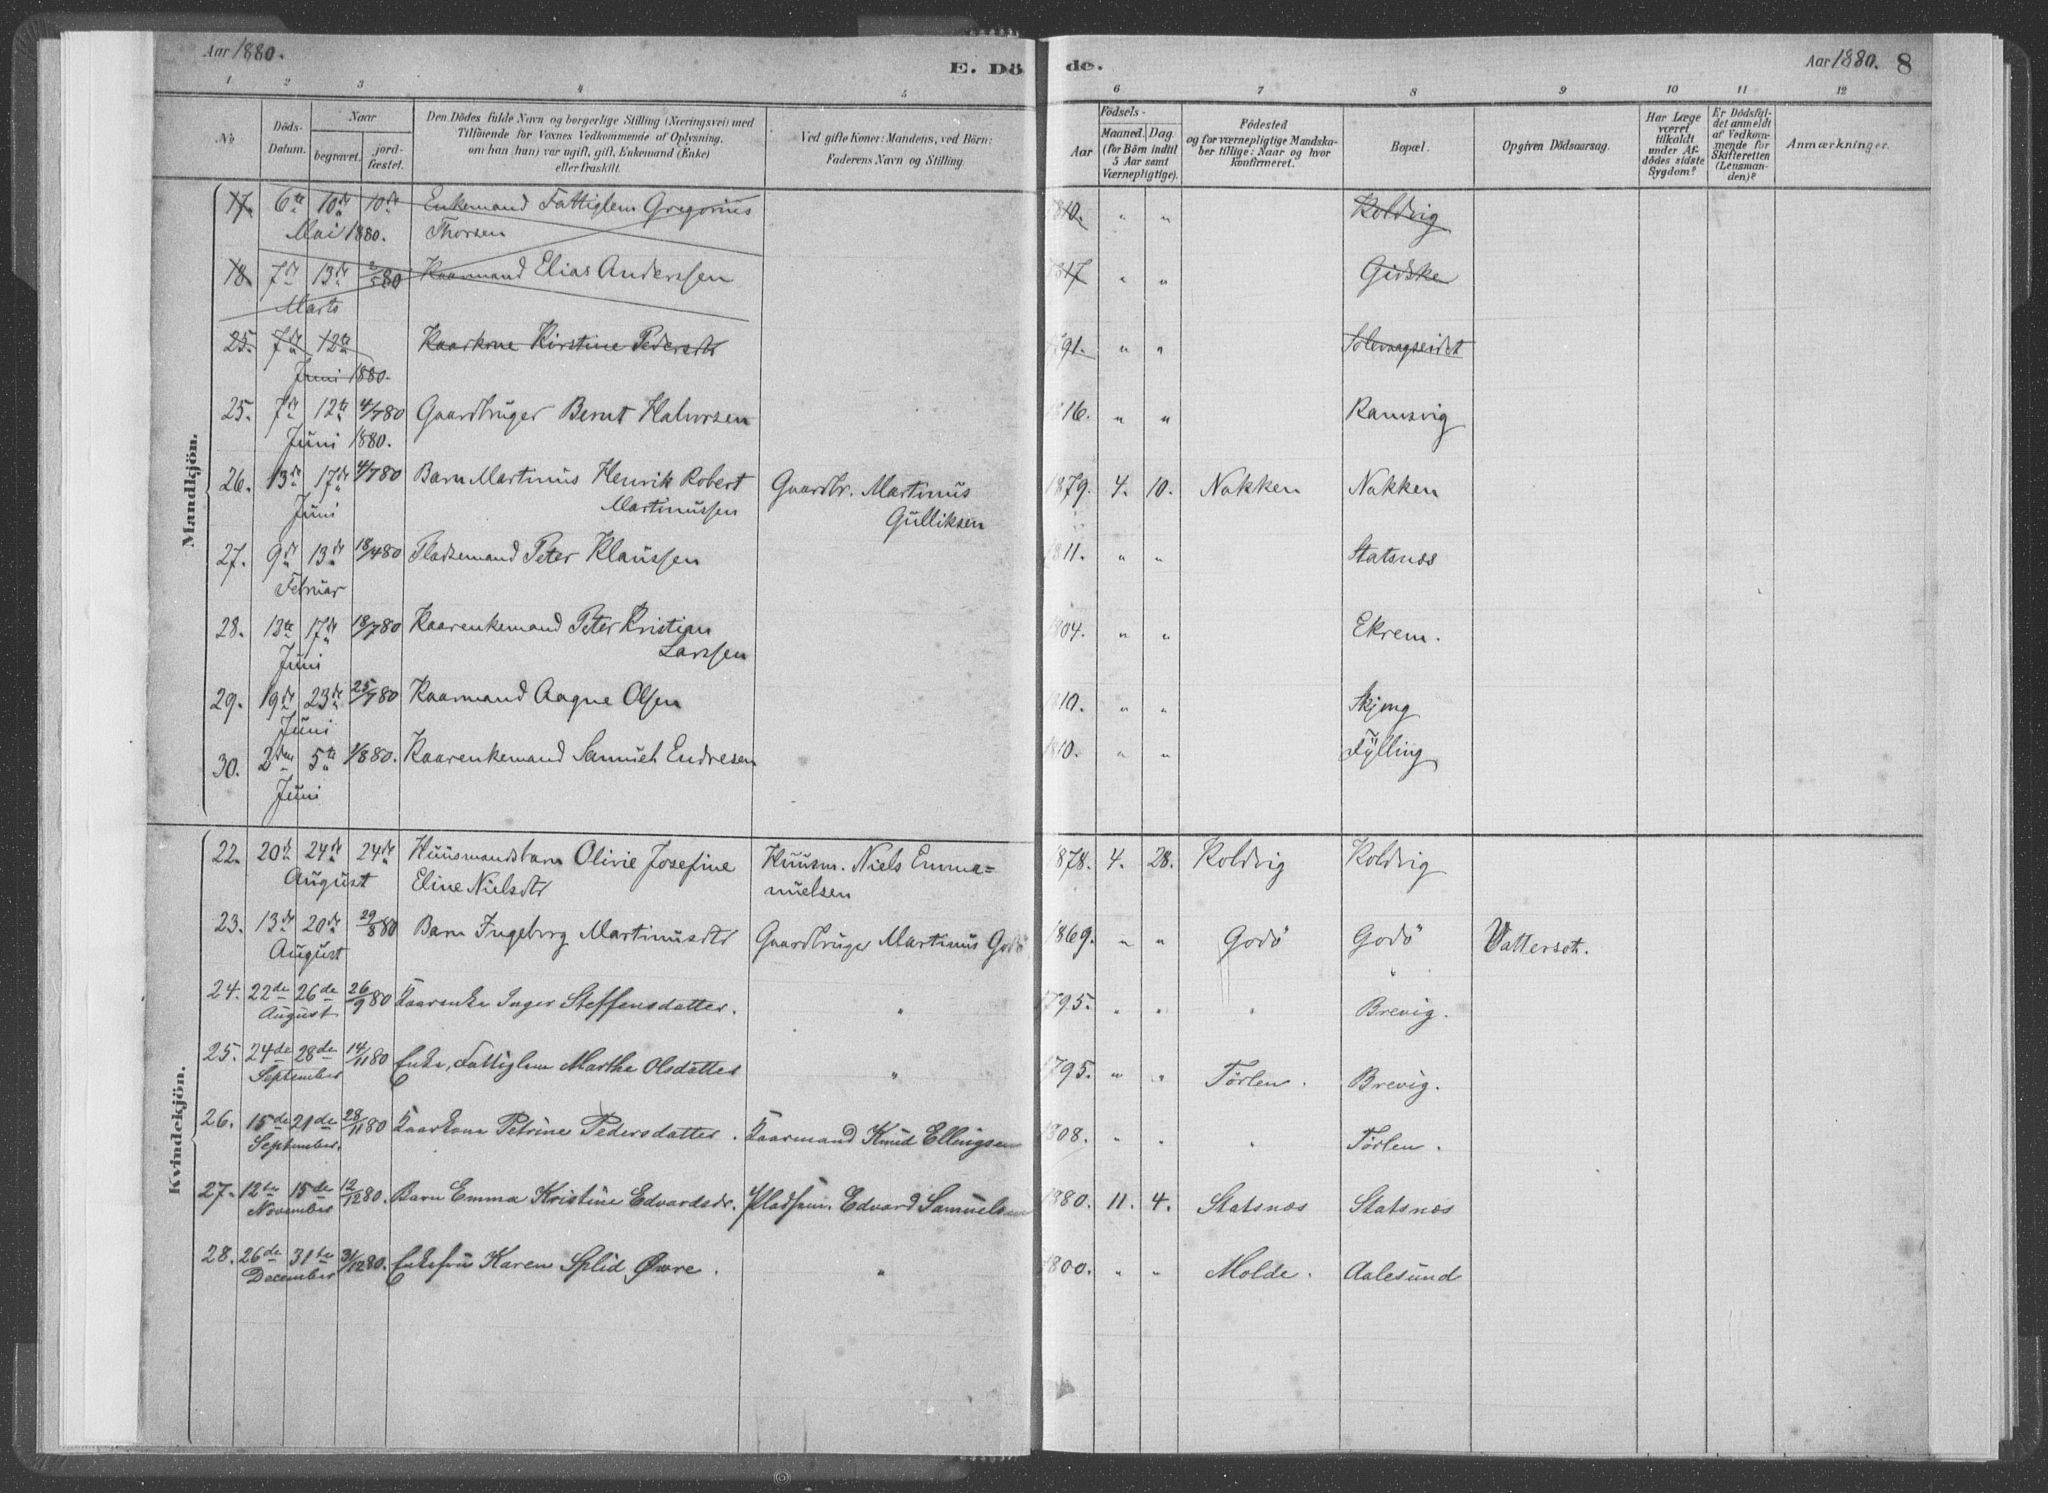 Aar 1880.
E. Dö
de.
Aar 1880. 8
1 2 3 4 5 6 7 8 9 10 11 12
No
Döds-
Datum.
Naar
begravet.
jord-
fæstet.
Den Dödes fulde Navn og borgerlige Stilling (Næringsvei) med
Tilföiende for Voxnes Vedkommende af Oplysning,
om han (hun) var ugift, gift, Enkemand (Enke)
eller fraskilt.
Ved gifte Koner: Mandens, ved Börn:
Faderens Navn og Stilling.
Födsels-
Aar
Maaned. Dag
(for Börn indtil
5 Aar samt
Værnepligtige).
Födested
og for værnepligtige Mandska-
ber tillige: Naar og hvor
konfirmeret.
Bopæl.
Opgiven Dödsaarsag.
Har Læge
været
tilkaldt
under Af-
dödes sidste
Sygdom?
Er Dödsfal-
det anmeldt
af Vedkom-
mende for
Skifteretten
(Lensman-
den)?
Anmærkninger.
Mandkjön.
17. 6te 10de 10de Enkemand Fattiglem Gregorius 1810. " " Koldvig
Mai 1880. Thorsen
18. 7de 13de 2/5 80 Kaarmand Elias Anderssen 1817 " " Gidske
Marts
25. 7de 12te Kaarkone Kirstine Pedersdtr 1791. " " Solevaagseidet
Juni 1880.
25. 7de 12te 4/7 80 Gaardbruger Bernt Halvorsen 1816. " " Ramsvig
Juni 1880.
26. 13de 17de 4/7 80 Barn Martinus Henrik Robert Gaardbr. Martinus 1879. 4. 10. Nakken Nakken
Juni Martinussen Gulliksen
27. 9de 13de 18/4 80 Pladsemand Peter Klaussen 1811. " " Statsnæs
Februar
28. 13te 17de 18/7 80 Kaarenkemand Peter Kristian 1804. " " Ekrem.
Juni Larssen
29. 19de 23de 25/7 80 Kaarmand Aagne Olsen 1810. " " Skjong
Juni
30. 2den 5te 1/8 80. Kaarenkemand Samuel Endresen 1810. " " Fylling
Juni
Kvindekjön.
22. 20de 24de 24de Huusmandsbarn Olivie Josefine Huusm. Niels Emma= 1878. 4. 28. Koldvig Koldvig
August Eline Nielsdtr nuelsen
23. 13de 20de 29/8 80 Barn Ingeborg Martinusdtr Gaardbruger Martinus Godö 1869. " " Godö Godö Vattersot.
August
24. 22de 26de 26/9 80 Kaarenke Inger Steffensdatter. " 1795. " " " Brevig.
August
25. 24de 28de 14/11 80 Enke, Fattiglem Marthe Olsdatter " 1795. " " Tørlen. Brevig.
September
26. 15de 21de 28/11 80 Kaarkone Petrine Pedersdatter. Kaarmand Knud Ellingsen 1808. " " " Tørlen.
September.
27. 12te 15de 12/12 80. Barn Emma Kristine Edvardsdr. Pladsem. Edvard Samuelsen 1880. 11. 4. Statsnæs Statsnæs
November
28. 26de 31te 31/12 80. Enkefru Karen Splid Øwre. " 1800. " " Molde. Aalesund
December